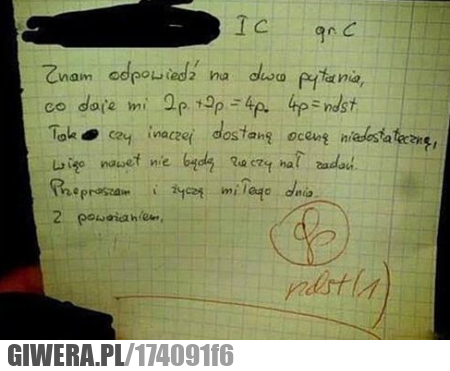 I C gr. C
Znam odpowiedź na dwa pytania,
co daje mi 2p. + 2p = 4p. 4p = ndst.
Tak czy inaczej dostanę ocenę niedostateczną,
więc nawet nie będę zaczynał zadań.
Przepraszam i życzę miłego dnia.
Z poważaniem,
ndst (1)
GIWERA.PL/174091f6